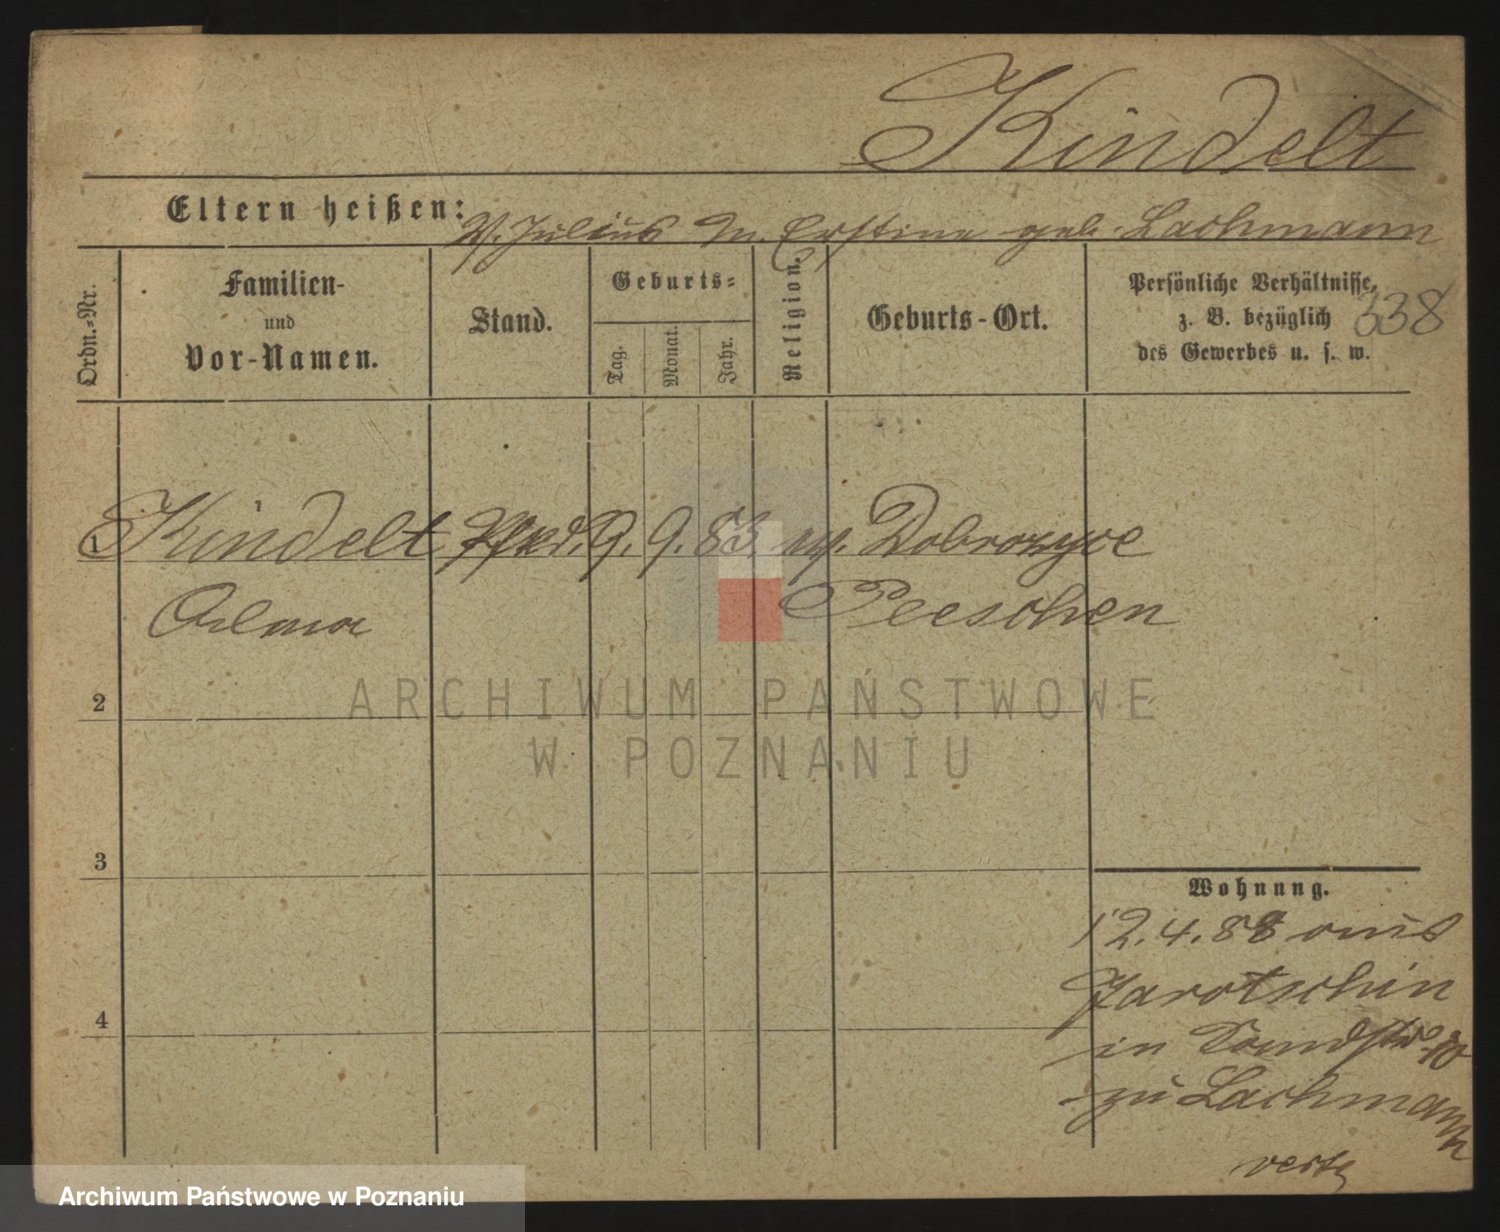 Kindelt
Eltern heißen: V. Julius M. Erstine geb. Lachmann
Ordn.-Nr.
Familien-
und
Vor-Namen.
Stand.
Geburts-
Tag.
Monat.
Jahr.
Religion.
Geburts-Ort.
Persönliche Verhältnisse,
z. B. bezüglich
des Gewerbes u. s. w.
338
1 Kindelt 9. 9. 83
Pleeschen
2
3
4
ARCHIWUM PAŃSTWOWE
W POZNANIU
Wohnung.
12.4.88 aus
Jarotschin
in
zu Lachmann
Archiwum Państwowe w Poznaniu